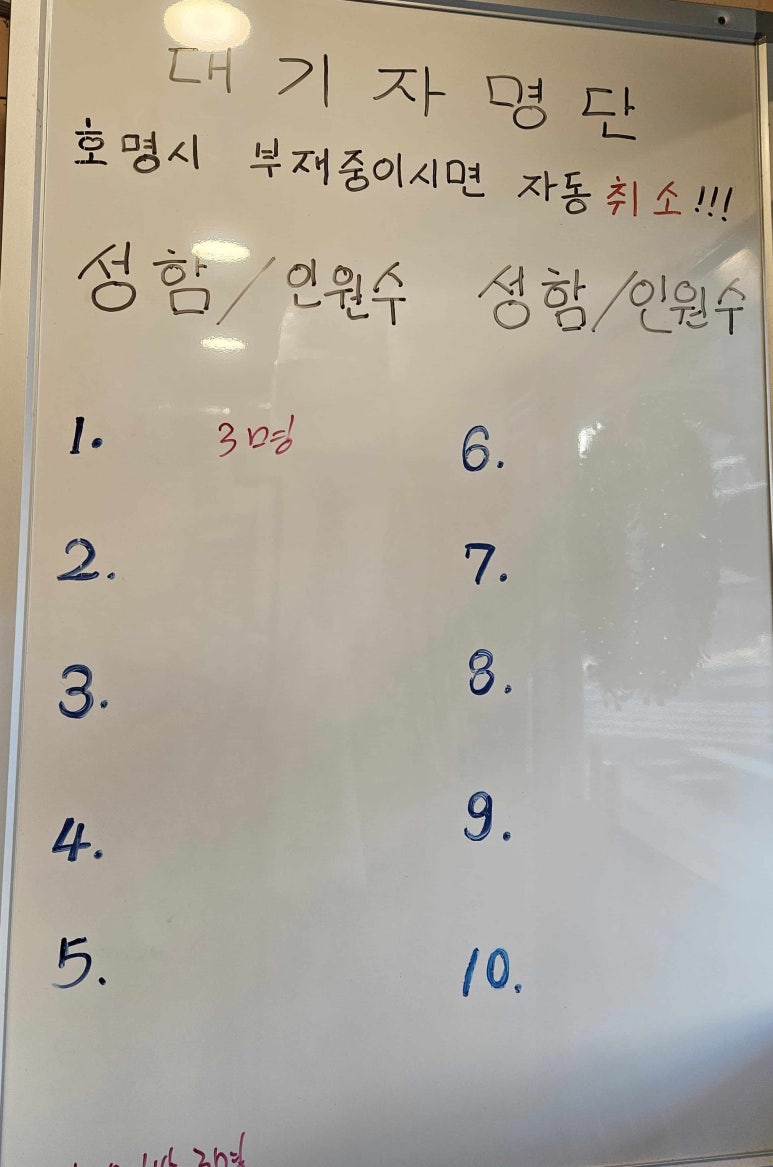 대기자명단
호명시 부재중이시면 자동취소!!!
성함/인원수 성함/인원수
1. 3명
2.
3.
4.
5.
6.
7.
8.
9.
10.
3명